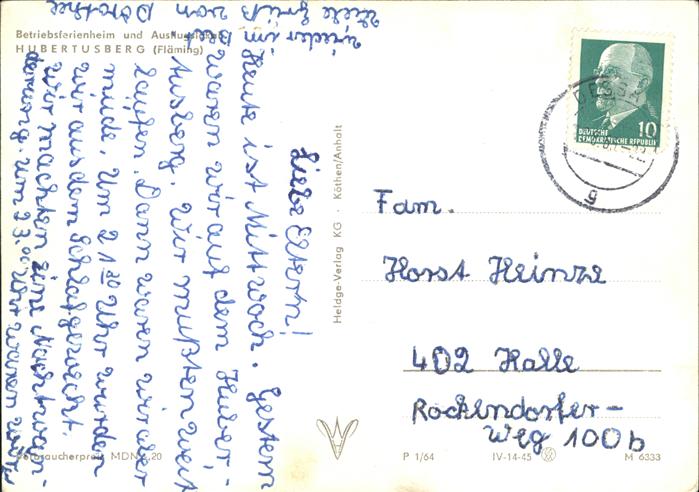 Betriebsferienheim und Ausflugslokal
HUBERTUSBERG (Fläming)
Liebe Eltern!
Heute ist Mittwoch. Gestern
waren wir auf dem Huber-
tusberg. Wir mußten weit
laufen. Dann waren wir aber
müde. Um 21 30 Uhr wurden
wir aus dem Schlaf geweckt.
Wir machten eine Nachtwan-
derung. Um 23.00 Uhr waren wir
wieder im
Viele Grüße
von Dorothee
Heldge-Verlag KG · Köthen/Anhalt
DEUTSCHE
DEMOKRATISCHE REPUBLIK
10
g
Fam.
Horst Heinze
402 Halle
Rockendorfer-
Weg 100b
Verbraucherpreis MDN 0,20
P 1/64
IV-14-45
M 6333